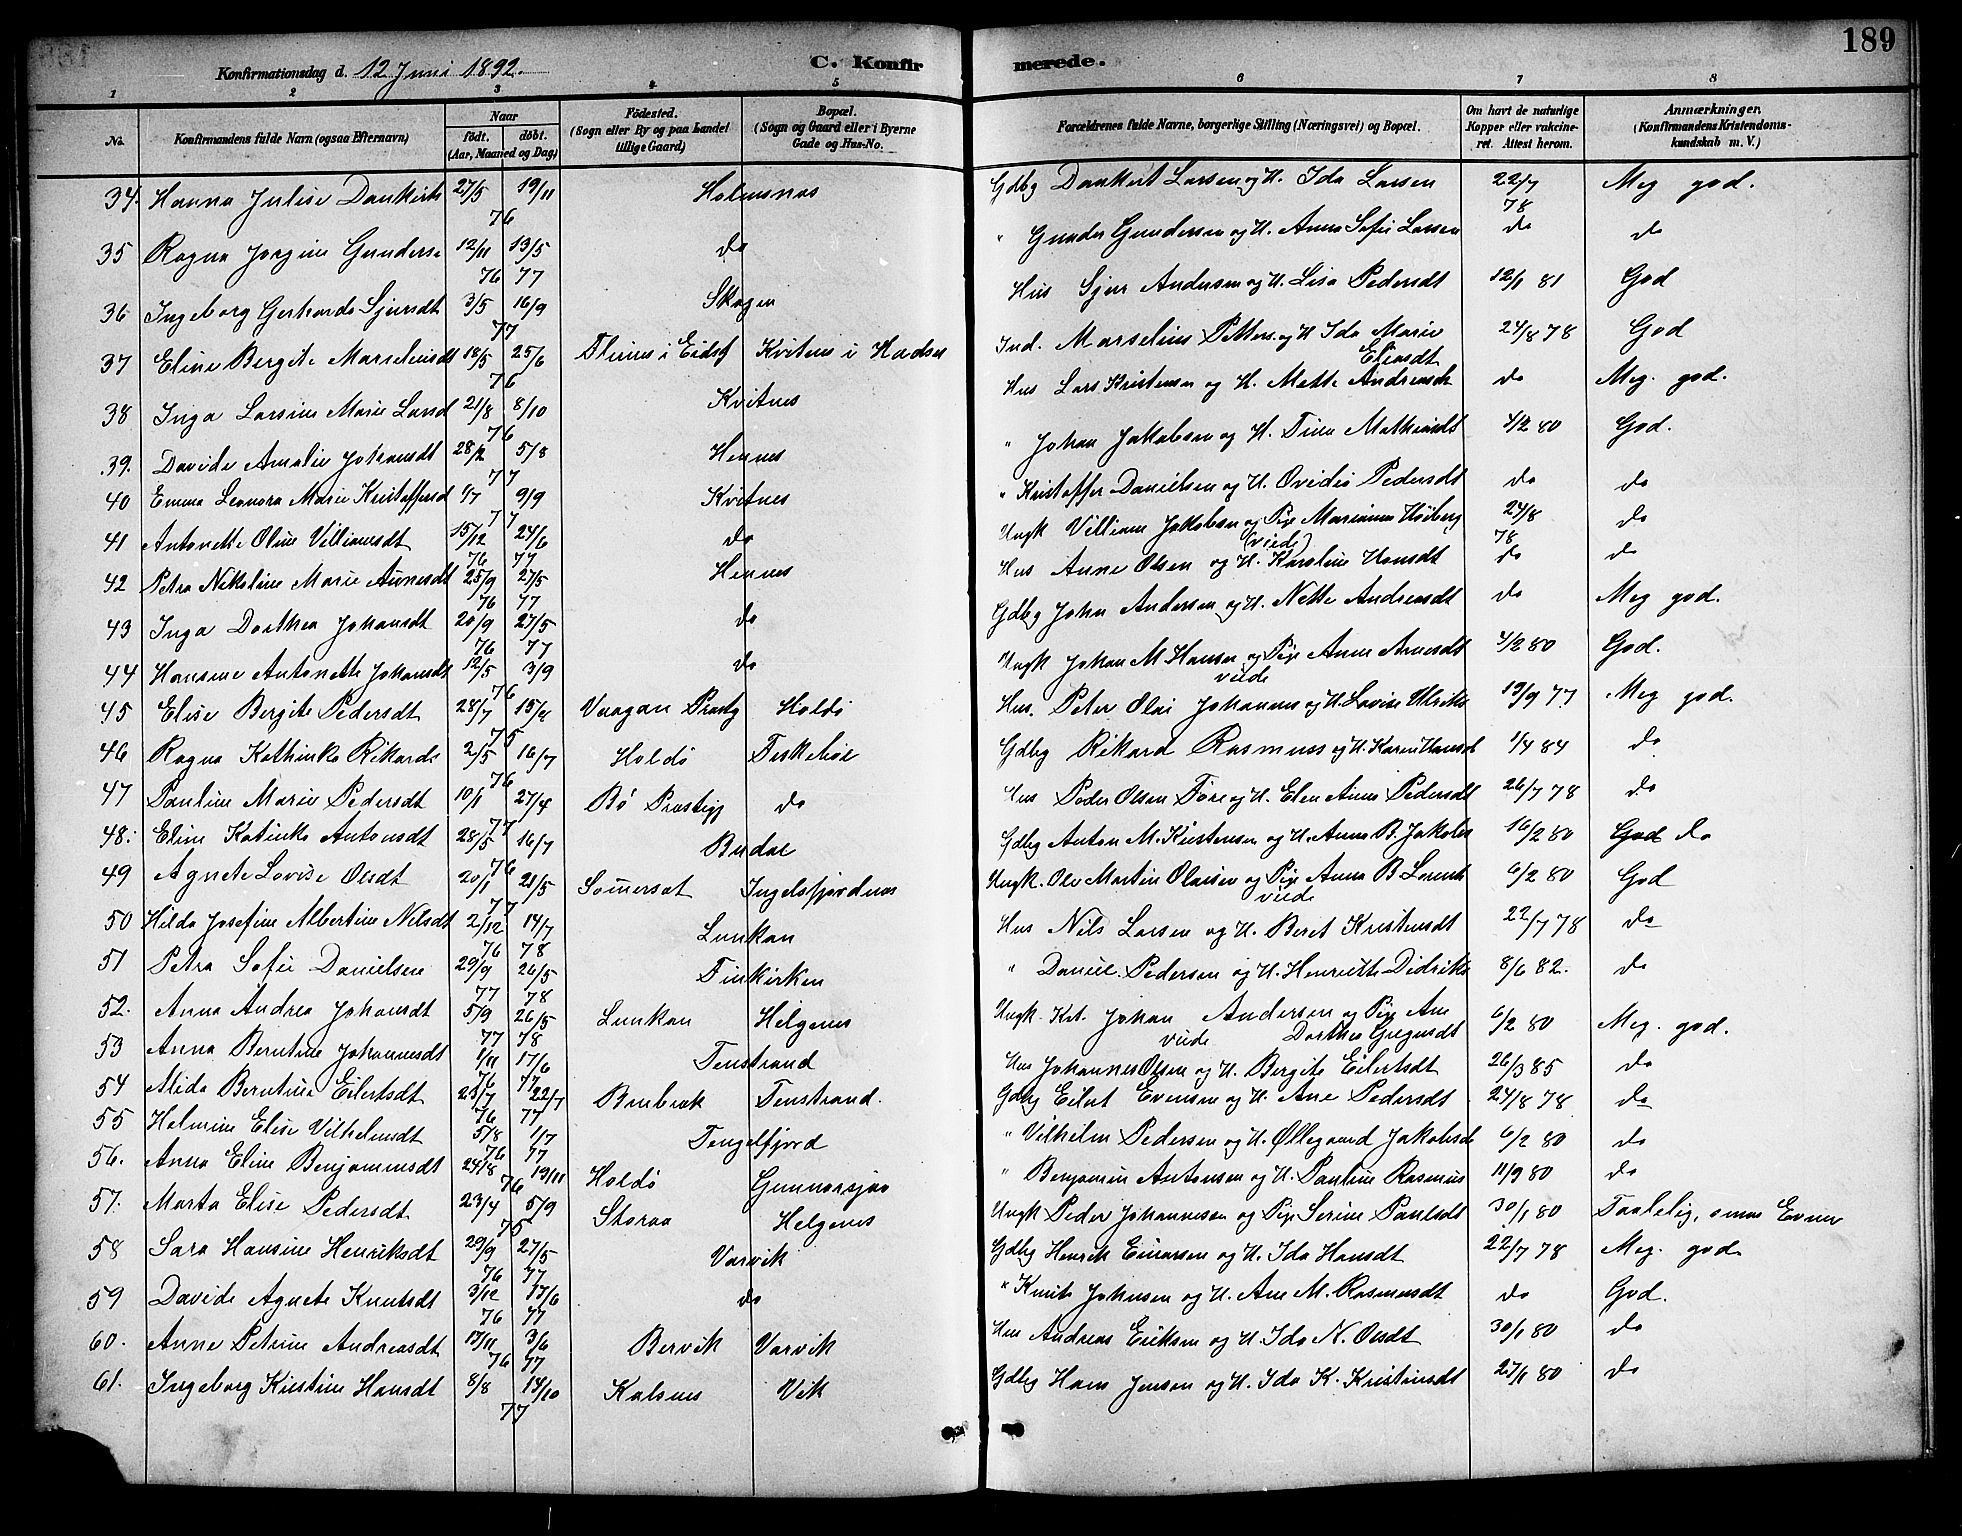 189
Konfirmationsdag d. 12 Juni 1892. C. Konfirmerede.
1 2 3 4 5 6 7 8
No. Konfirmandens fulde Navn (ogsaa Efternavn) Naar født. døbt. (Aar, Maaned og Dag) Fødested. (Sogn eller By og paa Landet tillige Gaard) Bopæl. (Sogn og Gaard eller i Byerne Gade og Hus-No. Forældrenes fulde Navne, borgerlige Stilling (Næringsvei) og Bopæl. Om havt de naturlige Kopper eller vakcineret. Attest herom. Anmærkninger. (Konfirmandens Kristendomskundskab m. V.)
34. Hanna Julise Dankerts 27/5 19/11 76 Holmsnes Gdbg Dankert Larsen og H. Ida Larsen 22/7 78 Meg god.
35 Ragna Jorgine Gunderse 12/11 76 13/5 77 do " Gunder Gundersen og H. Anna Sofie Larsen do do
36 Ingeborg Gerharda Sjursdt 3/5 16/9 77 Skogen Hus Sjur Andersen og H. Lisa Pedersdt 12/1 81 God
37 Eline Bergite Marseliusdt 18/5 25/6 76 Flines i Eidsf Kvitnes i Hadsel Ind. Marselius Petters. og H Ida Marie Eliasdt 24/8 78 God
38 Inga Larsine Marie Larsd 21/8 8/10 76 Kvitnes Hus Lars Kristensen og H. Mette Andreasdt do Meg. god.
39. Davida Amalie Johansdt 28/2 5/8 77 Hennes " Johan Jakobsen og H. Tina Mathiasdt 4/2 80 God.
40 Emma Leonora Marie Kristoffersd 1/7 9/9 77 Kvitnes " Kristoffer Danielsen og H. Ovidia Pedersdt do do
41 Antonette Oline Villiamsdt 15/12 76 24/6 77 do Ungk Villiam Jakobsen og Pige Marianna Høiberg (viede) 24/8 78 do
42 Petra Nikoline Marie Arnesdt 25/9 76 27/5 77 Hennes Hus Arne Olsen og H. Karoline Hansdt do do
43 Inga Dorthea Johansdt 20/9 76 27/5 77 do Gdbg Johan Andersen og H. Nette Andreasdt do Meg god.
44 Hansine Antonette Johansdt 12/5 3/9 76 do Ungk Johan M. Hansen og Pige Anna Arnesdt viede 4/2 80 God.
45 Elise Bergite Pedersdt 28/7 15/8 75 Vaagan Præstg Holdö Hus. Peter Olai Johannes og H. Lovise Ulrikke 19/9 77 Meg god.
46 Ragna Kathinka Rikards 2/5 16/7 76 Holdö Fiskeböl Gdbg Rikard Rasmuss og H. Karen Hansdt 1/4 84 do
47 Pauline Marie Pedersdt 10/1 27/4 77 Bö Præstigj do Hus Peder Olsen Fore og H. Elen Anna Pedersdt 26/7 78 do
48. Eline Katinka Antonsdt 28/5 16/7 76 Budal Gdbg Anton M. Kristensen og H. Anna B. Jakobs 16/2 80 God do
49 Agnete Lovise Olsdt 20/1 21/5 77 Sommerset Ingelsfjordnes Ungk. Ole Martin Olaisen og Pige Anna B Lorents viede 6/2 80 God
50 Hilda Josefine Albertine Nilsdt 2/12 76 14/7 78 Lunkan Hus Nils Larsen og H. Beret Kristensdt 22/7 78 do
51 Petra Sofie Danielsen 29/9 77 26/5 78 Finkirken " Daniel Pedersen og H. Henriette Didriks 8/6 82. do
52. Anna Andrea Johansdt 5/9 77 26/5 78 Lunkan Helgenes Ungk. Krt. Johan Andersen og Pige Ane viede Dorthea Gregusdt 6/2 80 Meg. god.
53 Anna Berntine Johannesdt 1/11 76 17/6 77 Fenstrand Hus Johannes Olsen og H. Bergite Eilertsdt 26/3 85 do
54 Alida Berntine Eilertsdt 23/7 76 22/7 77 Benbrek Fenstrand. Gdbg Eilert Evensen og H. Ane Pedersdt 24/8 78 do
55 Helmine Elise Vilhelmsdt 5/8 76 1/7 77 Tengelfjord " Vilhelm Pedersen og H. Øllegaard Jakobsdt 6/2 80 do
56. Anna Eline Benjaminsdt 24/8 19/11 76 Holdö Gunnarsjaa " Benjamin Antonsen og H. Pauline Rasmus 11/9 80 do
57. Marta Elise Pedersdt 23/4 5/9 75 Storaa Helgenes Ungk Peder Johannesen og Pige Serine Paulsdt 30/1 80 Taalelig, smaa Evner
58 Sara Hansine Henriksdt 29/9 76 27/5 77 Varvik Gdbg Henrik Einarsen og H. Ida Hansdt 22/7 78 Meg. god
59 Davida Agnete Knutsdt 3/12 76 17/6 77 do " Knut Johnsen og H. Ane M. Rasmusdt do God.
60. Anne Petrine Andreasdt 17/11 76 3/6 77 Bervik Varvik Hus Andreas Eriksen og H. Ida N. Olsdt 30/1 80 do
61. Ingeborg Kirstine Hansdt 8/8 14/10 77 Kalsnes Vik Gdbg Hans Jensen og H. Ida K. Kristiansdt 27/1 80 do